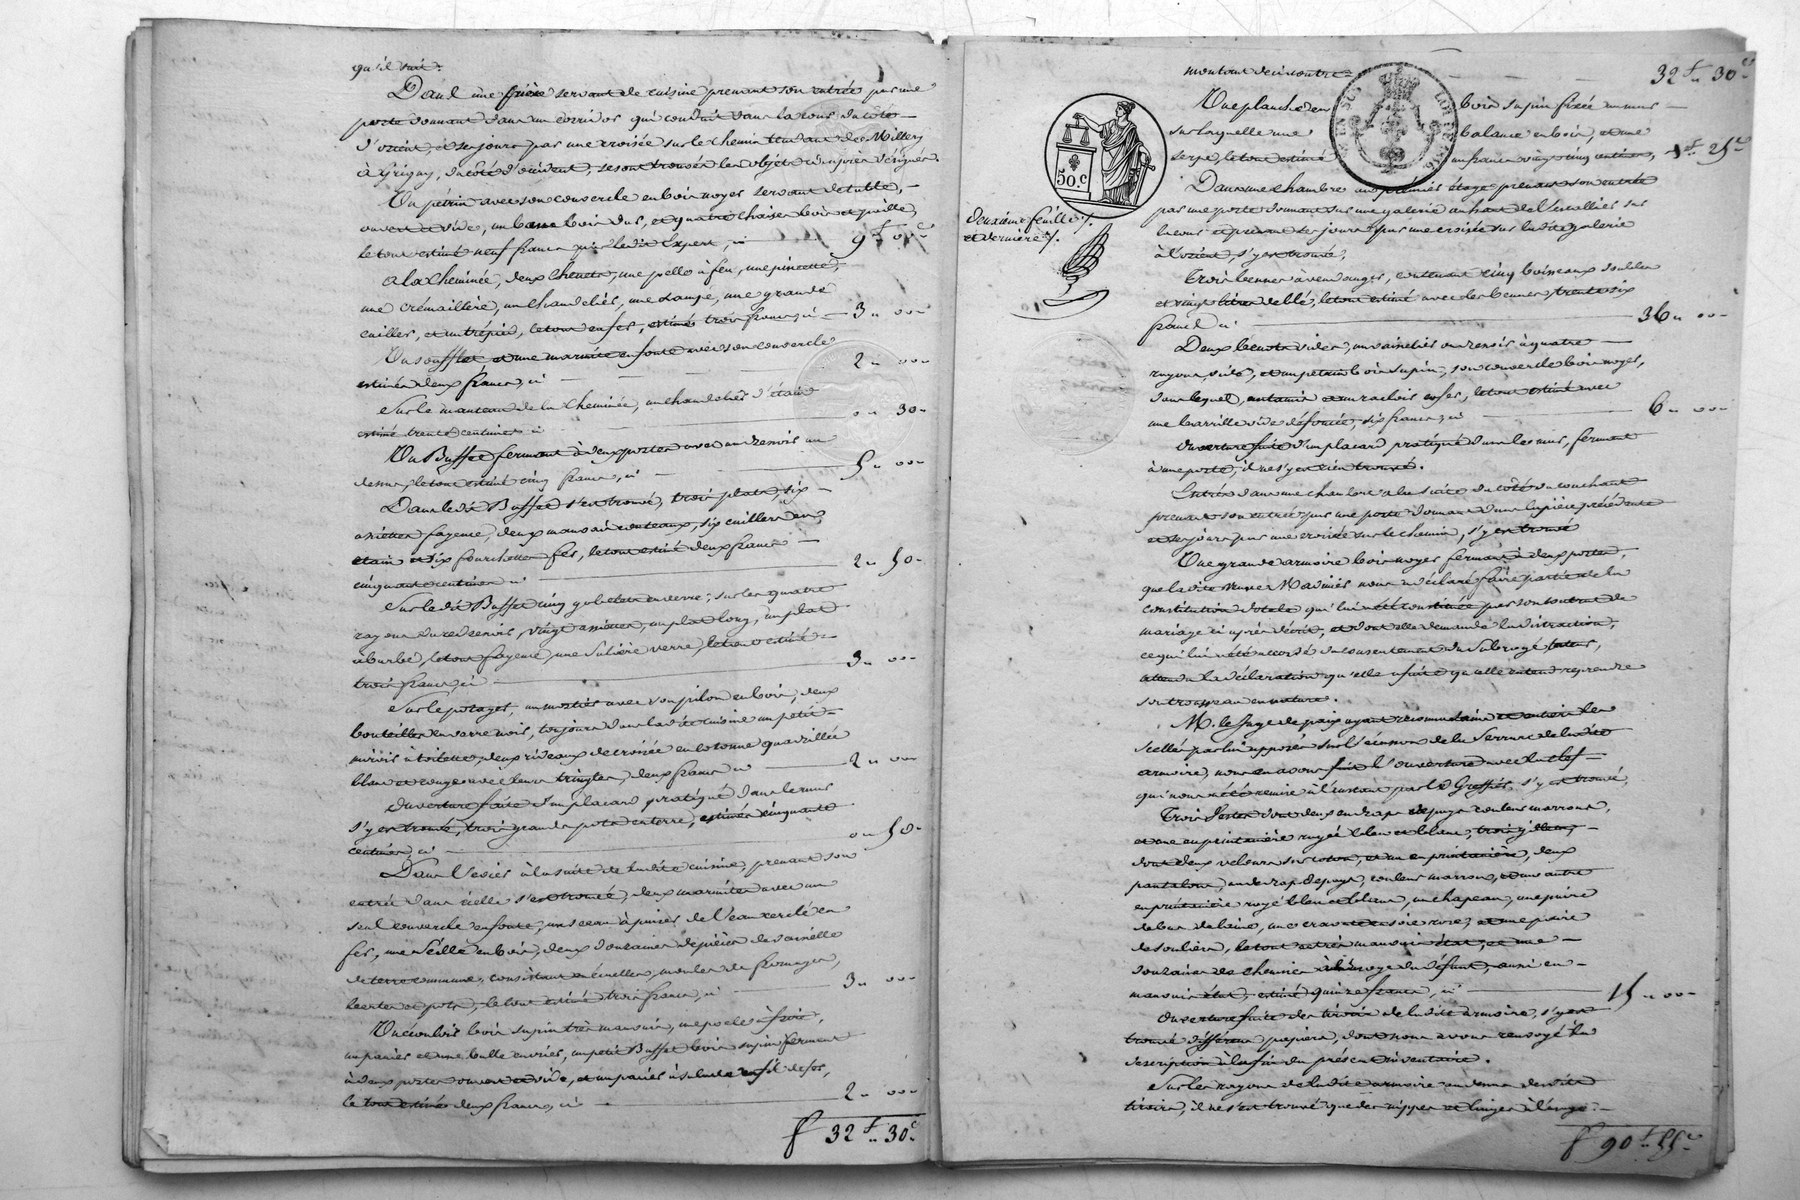 qu'il suit.
Dans une pièce servant de cuisine prenant son entrée par une
porte donnant dans un corridor qui conduit dans la cour du côté
d'orient, et ses jours par une croisée sur le chemin tendant de Millery
à Grigny, du côté d'occident, se sont trouvés les objets ci-après désignés.
Un pétrin avec son couvercle en bois noyer servant de table,
ouvert et vide, un banc bois dur, et quatre chaises bois et paille,
le tout estimé neuf francs par le dit Expert, ci 9f "" c
A la cheminée, deux chenets, une pelle à feu, une pincette,
une crémaillère, un chandelier, une lampe, une grande
cuiller, et un trépied, le tout en fer, estimé trois francs, ci — 3 " 00 "
Un soufflet et une marmite en fonte avec son couvercle
estimés deux francs, ci 2 " 00 "
Sur le manteau de la cheminée, un chandelier d'étain
estimé trente centimes ci 0 " 30 "
Un Buffet fermant à deux portes avec un dressoir au
dessus, le tout estimé cinq francs, ci 5 " 00 "
Dans le dit Buffet s'est trouvé, trois plats, six
assiettes fayence, deux mauvais couteaux, six cuillers en
étain et six fourchettes fer, le tout estimé deux francs
cinquante centimes ci 2 " 50 "
Sur le dit Buffet cinq gobelets en verre; sur les quatre
rayons du dressoir, vingt assiettes, un plat long, un plat
à barbe, le tout fayence, une salière verre, le tout estimé
trois francs, ci 3 " 00 "
Sur le potager, un mortier avec son pilon en bois, deux
bouteilles en verre noir, toujours dans la dite cuisine un petit
miroir à toilette, deux rideaux de croisée en cotonne quadrillée
blanc et rouge avec leurs tringles, deux francs ci 2 " 00
Ouverture faite d'un placard pratiqué dans le mur
s'y est trouvé, trois grands pots en terre, estimés cinquante
centimes, ci 0 " 50 "
Dans l'évier à la suite de la dite cuisine, prenant son
entrée dans icelle s'est trouvé, deux marmites avec un
seul couvercle en fonte, un sceau à puiser de l'eau cerclé en
fer, une seille en bois, deux douzaines de pièces de vaisselle
de terre commune, consistant en écuelles, moules de fromages,
et pots, le tout estimé trois francs, ci 3 " 00 "
Un bois sapin très mauvais, une poële à frire,
un panier et une bulle en osier, un petit Buffet bois sapin fermant
à deux portes ouvert et vide, et un panier à salade en fil de fer,
le tout estimé deux francs, ci 2 " 00 "
f 32 f " 30 c
montant de ci contre 32 f " 30 c
Une planche en bois sapin fixée au mur
sur laquelle une balance en bois, et une
serpe, le tout estimé un franc vingt cinq centimes, 1 f 25 c
50.c
deuxième feuille
et dernière
Dans une chambre au premier étage prenant son entrée
par une porte donnant sur une galerie au haut de l'escallier sur
la cour et prenant ses jours par une croisée sur la dite galerie
à l'orient, s'y est trouvé,
Trois bennes à vendanger, contenant cinq boisseaux doubles
et vingt litres de blé, le tout estimé avec les bennes trente six
francs ci 36 " 00 "
Deux vides, un à quatre
rayons, vide, et un pétrin bois sapin, son couvercle bois noyer,
dans lequel, un tamis et un racloir en fer, le tout estimé avec
une barrille vide défoncée, six francs, ci 6 " 00 "
Ouverture faite d'un placard pratiqué dans le mur, fermant
à une porte, il ne s'y est rien trouvé.
Entrés dans une chambre à la suite du côté du couchant
prenant son entrée par une porte donnant dans la pièce précédente
et ses jours par une croisée sur le chemin, s'y est trouvé
Une grande armoire bois noyer fermant à deux portes,
que la dite Veuve nous a déclaré faire partie de la
constitution dotale qui lui a été constituée par son contrat de
mariage ci après décrit, et dont elle demande la distraction,
ce qui lui a été accordé du consentement du subrogé tuteur,
attendu la déclaration qu'elle a faite qu'elle entend reprendre
son trousseau en nature.
M. le Juge de paix ayant reconnu sains et entiers les
scellés par lui apposés sur l'écusson de la serrure de la dite
armoire, nous en avons fait l'ouverture avec la clef
qui nous a été remise à l'instant par le Greffier, s'y est trouvé,
Trois vestes dont deux en drap de pays couleur marrons,
et une en printanière rayée bleu et blanc, trois gillets,
dont deux velours sur coton, et un en printanière, deux
pantalons, un de drap de pays, couleur marrons, et un autre
en printanière rayé bleu et blanc, un chapeau, une paire
de bas de laine, une cravatte soie noire, et une paire
de souliers, le tout en très mauvais état, et une
douzaine de chemises à l'usage du défunt, aussi en
mauvais état, estimés quinze francs, ci 15 " 00 "
Ouverture faite des tiroirs de la dite armoire, s'y est
trouvé différens papiers, dont nous avons renvoyé la
description à la fin du présent inventaire.
Sur les rayons de la dite armoire au dessus des dits
tiroirs, il ne s'est trouvé que des nippes et linges à l'usage
f 90 f " 55 c